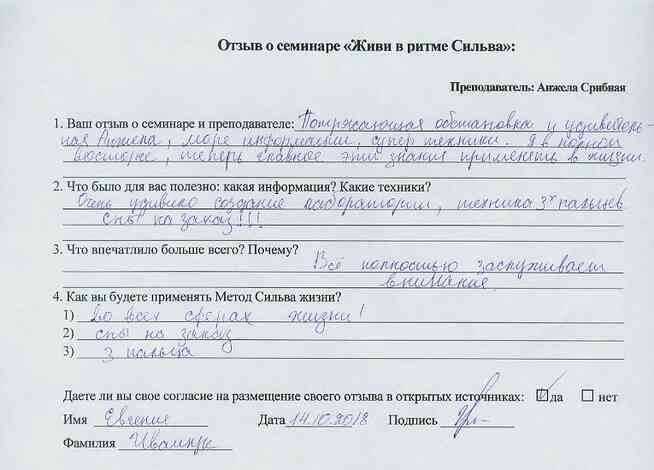 Отзыв о семинаре «Живи в ритме Сильва»:
Преподаватель: Анжела Срибная
1. Ваш отзыв о семинаре и преподавателе: Потрясающая обстановка и удивитель-
ная Анжела, море информации, супер техники. Я в полном
восторге, теперь главное эти знания применить в жизни.
2. Что было для вас полезно: какая информация? Какие техники?
Очень удивило создание лаборатории, техника 3х пальцев
сны на заказ!!!
3. Что впечатлило больше всего? Почему?
Всё полностью заслуживает
внимание.
4. Как вы будете применять Метод Сильва жизни?
1) Во всех сферах жизни!
2) сны на заказ
3) 3 пальца
Даете ли вы свое согласие на размещение своего отзыва в открытых источниках: да нет
Имя Евгения Дата 14.10.2018 Подпись
Фамилия